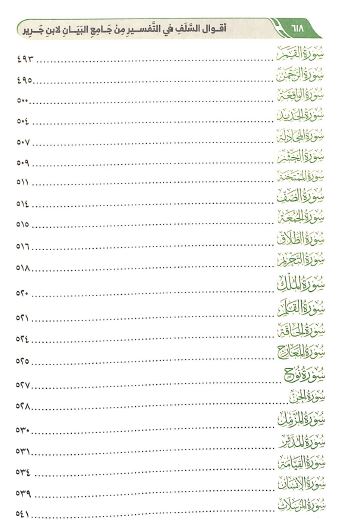 ٦١٨ أقوال السَّلَفِ في التَّفسيرِ مِنْ جَامِعِ البَيَانِ لابنِ جَرِيرٍ
سُورَةُ القَمَرِ ٤٩٣
سُورَةُ الرَّحْمَنِ ٤٩٥
سُورَةُ الوَاقِعَةِ ٥٠٠
سُورَةُ الحَدِيدِ ٥٠٤
سُورَةُ المُجَادلَةِ ٥٠٧
سُورَةُ الحَشْرِ ٥٠٩
سُورَةُ المُمْتَحنَةِ ٥١١
سُورَةُ الصَّفِّ ٥١٤
سُورَةُ الجُمُعَةِ ٥١٥
سُورَةُ الطَّلَاقِ ٥١٦
سُورَةُ التَّحْرِيمِ ٥١٨
سُورَةُ المُلْكِ ٥٢٠
سُورَةُ القَلَمِ ٥٢١
سُورَةُ الحَاقَّةِ ٥٢٤
سُورَةُ المَعَارِجِ ٥٢٥
سُورَةُ نُوحٍ ٥٢٧
سُورَةُ الجِنِّ ٥٢٨
سُورَةُ المُزَّمِّلِ ٥٣٠
سُورَةُ المُدَّثِّرِ ٥٣١
سُورَةُ القِيَامَةِ ٥٣٤
سُورَةُ الإِنْسَانِ ٥٣٩
سُورَةُ المُرْسَلَاتِ ٥٤١